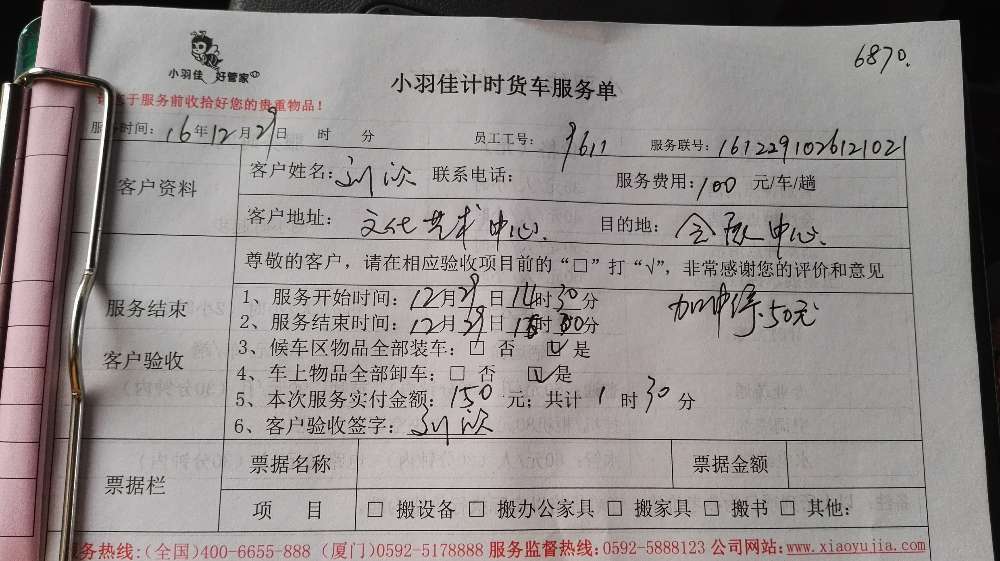 6870.
小羽佳 好管家
小羽佳计时货车服务单
于服务前收拾好您的贵重物品！
服务时间：16年12月29日 时 分 员工工号：9611 服务联号：1612291026121021
客户资料
客户姓名：刘欣 联系电话： 服务费用：100 元/车/趟
客户地址：文化艺术中心. 目的地：会展中心.
尊敬的客户，请在相应验收项目前的“□”打“√”，非常感谢您的评价和意见
服务结束
客户验收
1、服务开始时间：12月29日14时30分
2、服务结束时间：12月29日 时00分
50元
3、候车区物品全部装车：□ 否 ☑ 是
4、车上物品全部卸车：□ 否 ☑ 是
5、本次服务实付金额：150 元；共计 1 时30分
6、客户验收签字：刘欣
票据栏
票据名称 票据金额
项 目 □ 搬设备 □ 搬办公家具 □ 搬家具 □ 搬书 □ 其他：
务热线：（全国）400-6655-888 （厦门）0592-5178888 服务监督热线：0592-5888123 公司网站：www.xiaoyujia.com